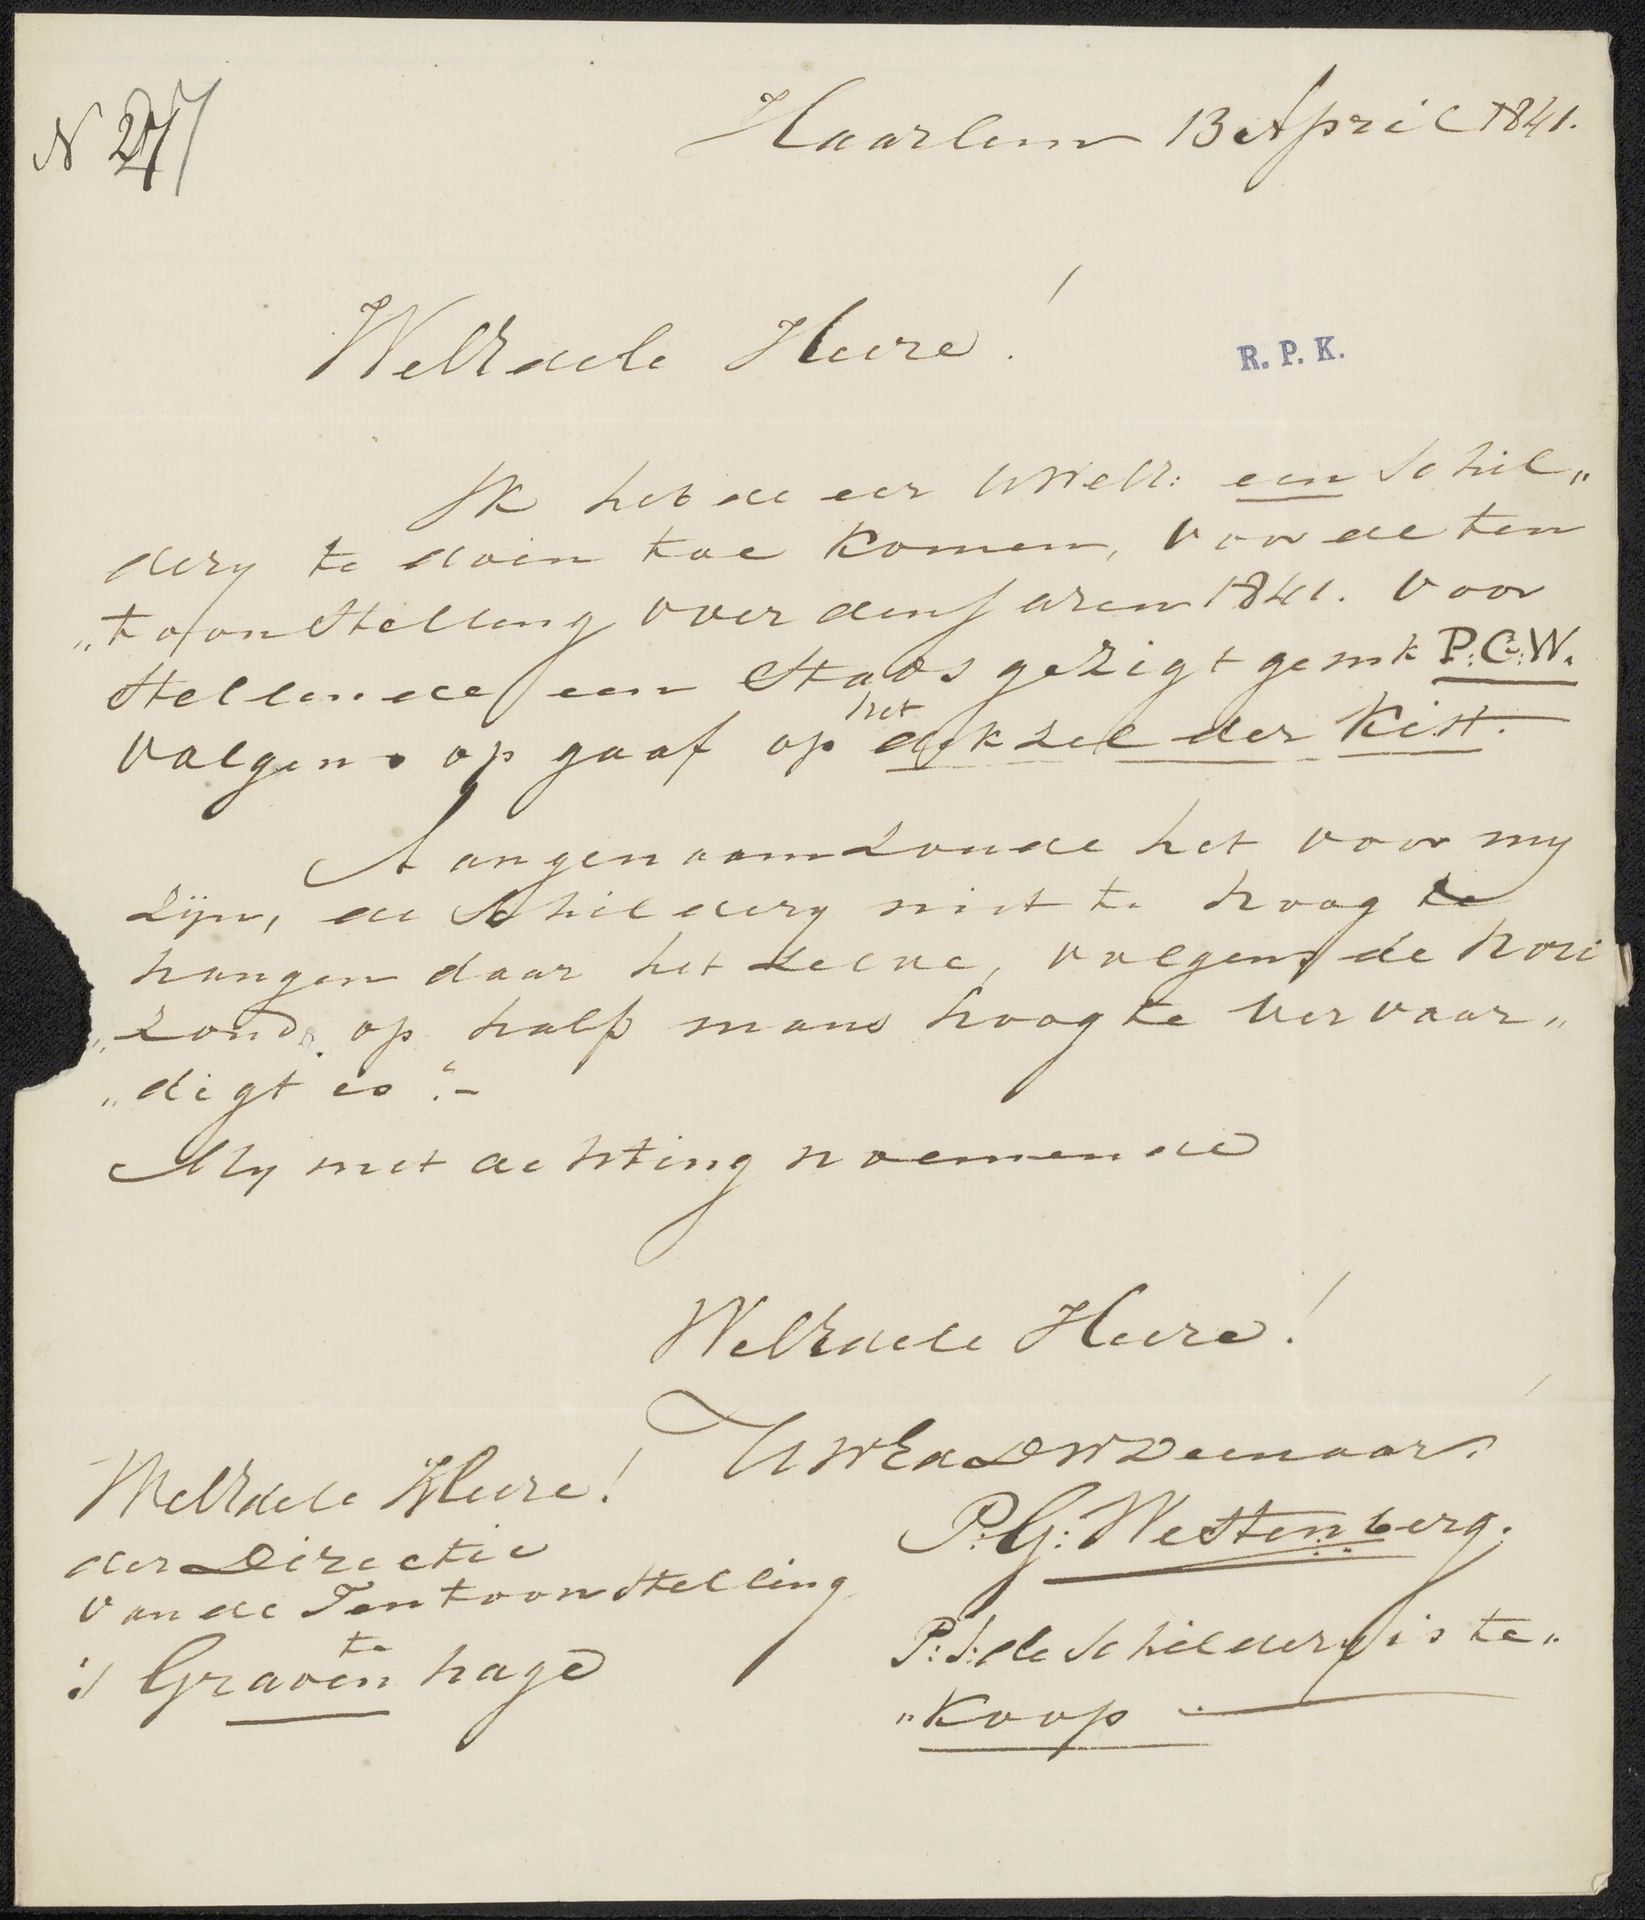 N 27
Haarlem 13 April 1841.
WelEdele Heere!
R. P. K.
Ik heb de eer UWelE: een Schil„
dery te doen toe komen, voor de ten
„toonstelling over den Jaren 1841. voor
stellende een Stads gezigt gemk P:G:W.
volgens op gaaf op het dekzel der Kist.
Aangenaam zoude het voor my
zijn, de Schildery niet te hoog te
hangen daar het zelve, volgens de hori
„zond op half mans hoogte vervaar„
„digt is.“—
My met achting noemende
WelEdele Heere!
UWEd DW Deenaar.
P:G: Westenberg.
WelEdele Heere!
der Directie
van de Tentoonstelling
te
's Gravenhage
P:S: de Schildery is te„
„koop.